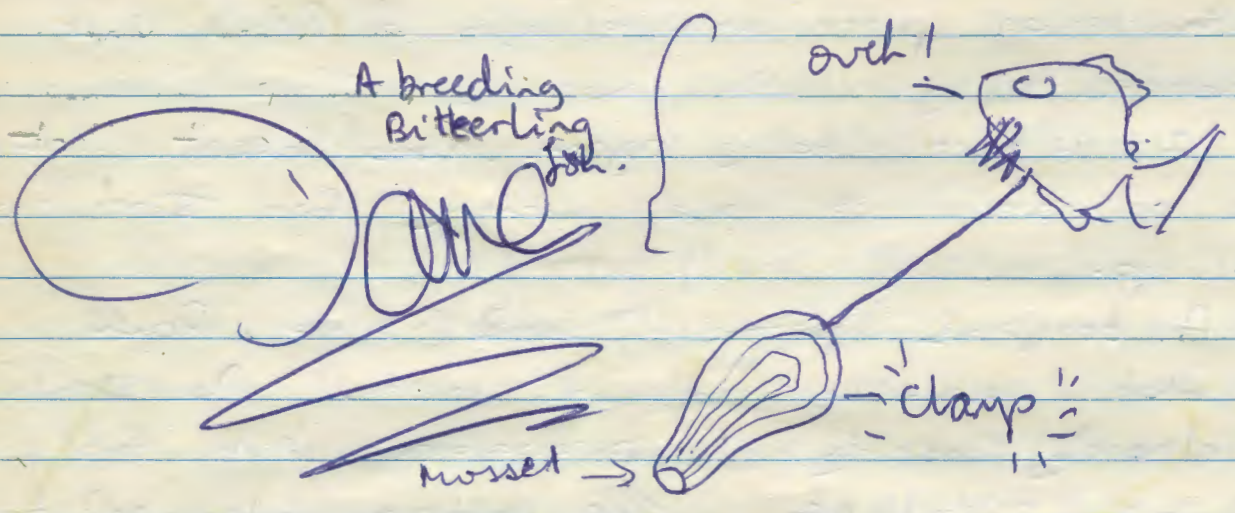 A breeding
Bitterling
fish.
ouch!
Clamp
Mussel